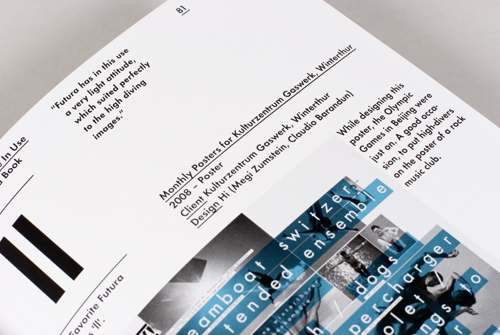 81
"Futura has in this use
a very light attitude,
which suited perfectly
to the high diving
images."
Monthly Posters for Kulturzentrum Gaswerk, Winterthur
2008 – Poster
Client Kulturzentrum Gaswerk, Winterthur
Design Hi (Megi Zumstein, Claudio Barandun)
While designing this
poster, the Olympic
Games in Beijing were
just on. A good occa-
sion, to put high-divers
on the poster of a rock
music club.
In Use
Book
II
Favorite Futura
is 'II'.
eamboat switzer
tended ensemble
dogs
percharger
olet
gs to